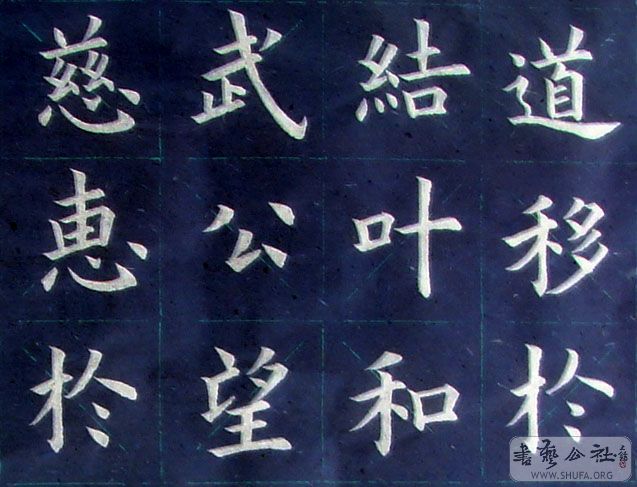 道移於
結叶和
武公望
慈惠於
書藝公社
WWW.SHUFA.ORG